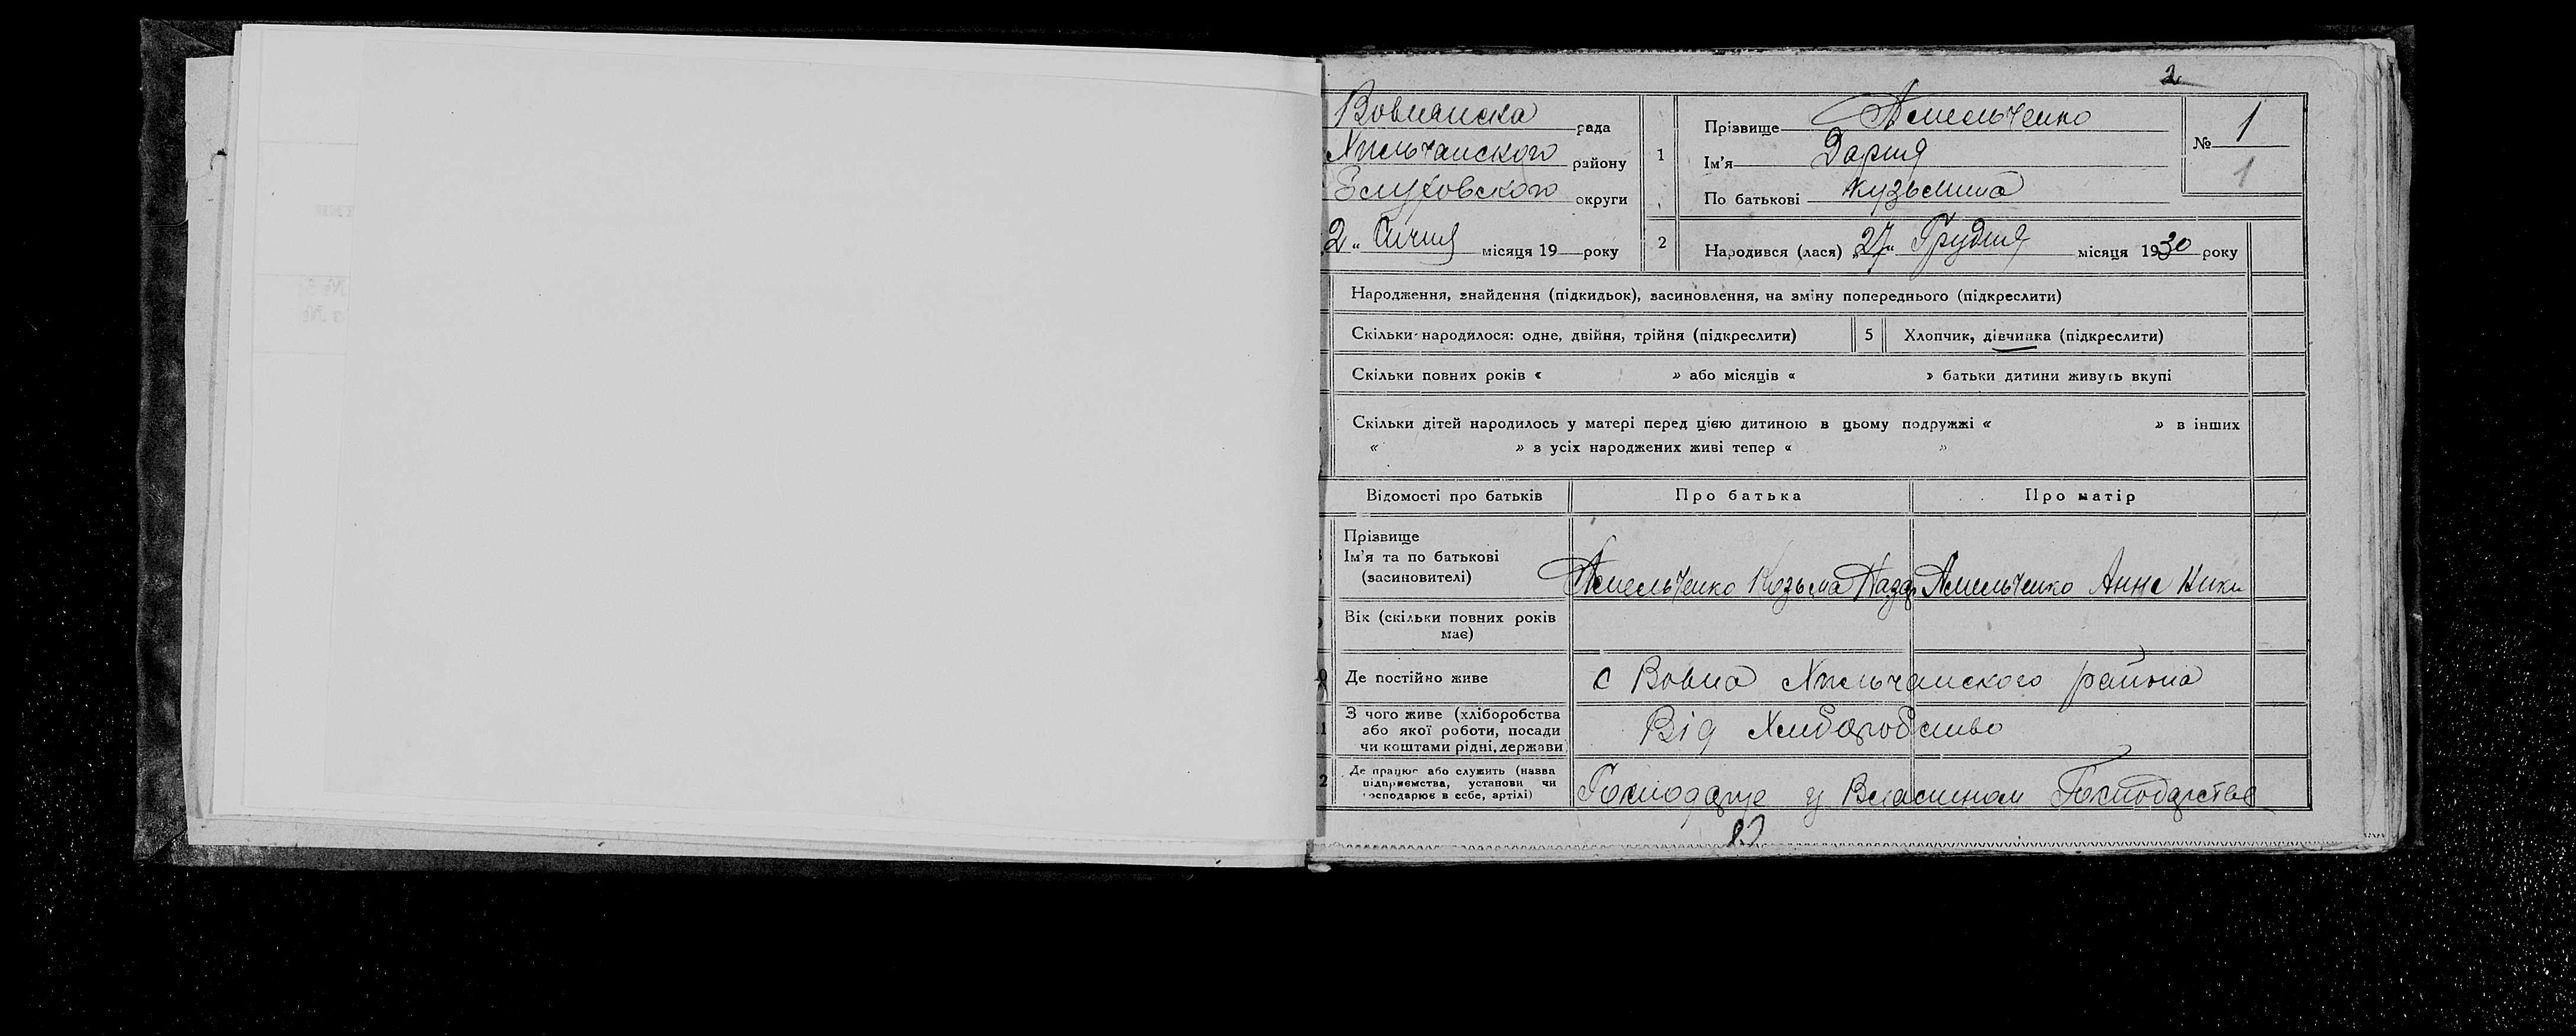 2
Вовнянска рада
Хильчанского району
Глуховского округи
2 " Січня місяця 19 року
1
Прізвище Амельченко
Ім'я Дария
По батькові Кузьмина
№ 1
1
2
Народився (лася) „27" Грудня місяця 1930 року
Народження, знайдення (підкидьок), васиновлення, на зміну попереднього (підкреслити)
Скільки народилося: одне, двійня, трійня (підкреслити)
5 Хлопчик, дівчинка (підкреслити)
Скільки повних років « » або місяців « » батьки дитини живуть вкупі
Скільки дітей народилось у матері перед цією дитиною в цьому подружжі « » в інших
« » з усіх народжених живі тепер « »
Відомості про батьків Про батька Про матір
Прізвище
Ім'я та по батькові
(засиновителі)
Амельченко Козьма Назар Амельченко Анна Ники
Вік (скільки повних років
має)
Де постійно живе с Вовна Хильчанского района
З чого живе (хліборобства
або якої роботи, посади
чи коштами рідні, держави
Від Хлиборобство
Де працює або служить (назва
підприємства, установи чи
господарює в себе, артілі)
Господарує у Власином Господарстве